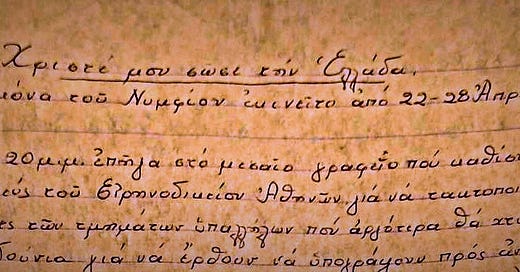 Χριστέ μου σῶσε τήν Ἑλλάδα.
κόνα τοῦ Νυμφίου ἐκινεῖτο ἀπό 22-28 Ἀπρ
20 μ.μ. ἐπῆγα στό μεσαῖο γραφεῖο πού καθίσ
εύς τοῦ Εἰρηνοδικείου Ἀθηνῶν γιά νά τακτοποι
ες τῶν τμημάτων ὑπαλλήλων πού ἀργότερα θά χτ
δούνια γιά νά ἔρθουν νά ὑπογράψουν πρός ἀν